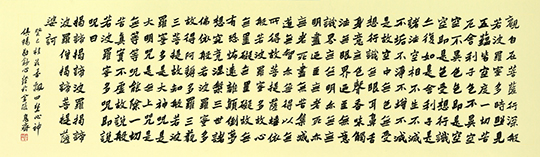 觀自在菩薩行深般
若波羅蜜多時照見
五蘊皆空度一切苦
厄舍利子色不異空
空不異色色即是空
空即是色受想行識
亦復如是舍利子是
諸法空相不生不滅
不垢不淨不增不減
是故空中無色無受
想行識無眼耳鼻舌
身意無色聲香味觸
法無眼界乃至無意
識界無無明亦無無
明盡乃至無老死亦
無老死盡無苦集滅
道無智亦無得以無
所得故菩提薩埵依
般若波羅蜜多故心
無罣礙無罣礙故無
有恐怖遠離顛倒夢
想究竟涅槃三世諸
佛依般若波羅蜜多
故得阿耨多羅三藐
三菩提故知般若波
羅蜜多是大神咒是
大明咒是無上咒是
無等等咒能除一切
苦真實不虛故說般
若波羅蜜多咒即說
咒曰
揭諦揭諦波羅揭諦
波羅僧揭諦菩提薩
婆訶